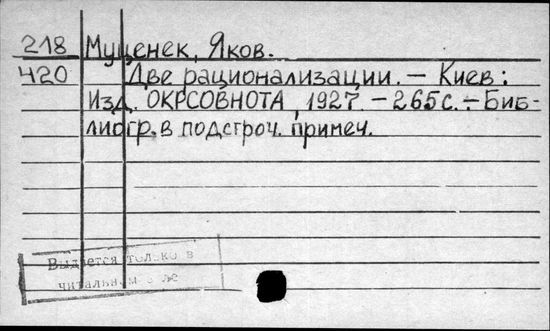 218 Муценек, Яков.
420 Две рационализации. — Киев:
Изд. ОКРСОВНОТА, 1927. — 265с. — Биб-
лиогр. в подстроч. примеч.
Выдается только в
читальном зале